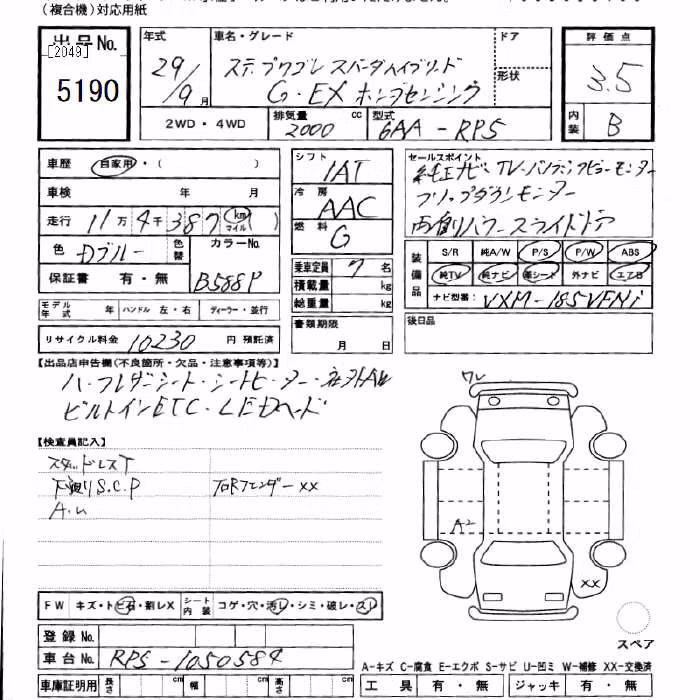 (複合機)対応用紙
出品No.
[2049]
5190
年式
29/9月
車名・グレード
ステップワゴン スパーダハイブリード
G・EX ホンダセンシング
ドア
形状
2WD・4WD
排気量 2000 cc
型式 6AA-RP5
評価点
3.5
内装 B
車歴 自家用・( )
車検 年 月
走行 11万4千387 km マイル ( )
色 Dブルー
色替
カラーNo. B588P
保証書 有・無
シフト IAT
冷房 AAC
燃料 G
乗車定員 7名
積載量 kg
総重量 kg
セールスポイント
純正ナビ TV・バックビューモニター
フリップダウンモニター
両側パワースライドドア
装備品
S/R 純A/W P/S P/W ABS
純TV 純ナビ 革シート 外ナビ エアB
ナビ型番: VXM-185VFNi
モデル年式 年 ハンドル 左・右 ディーラー・並行
リサイクル料金 10230 円 預託済
書類期限
月 日
後日品
【出品店申告欄(不良箇所・欠品・注意事項等)】
ハーフレザーシート・シートヒーター・社外AW
ビルトインETC・LEDヘッド
【検査員記入】
スタッドレスT
下廻りS.C.P
右Rフェンダー××
A.U
W
A2
XX
FW キズ・トビ石・割レX
シート内装 コゲ・穴・汚レ・シミ・破レ・スレ
登録No.
車台No. RP5-1050584
車庫証明用 長さ cm 幅 cm 高さ cm
スペア
A-キズ C-腐食 E-エクボ S-サビ U-凹ミ W-補修 XX-交換済
工具 有・無 ジャッキ 有・無